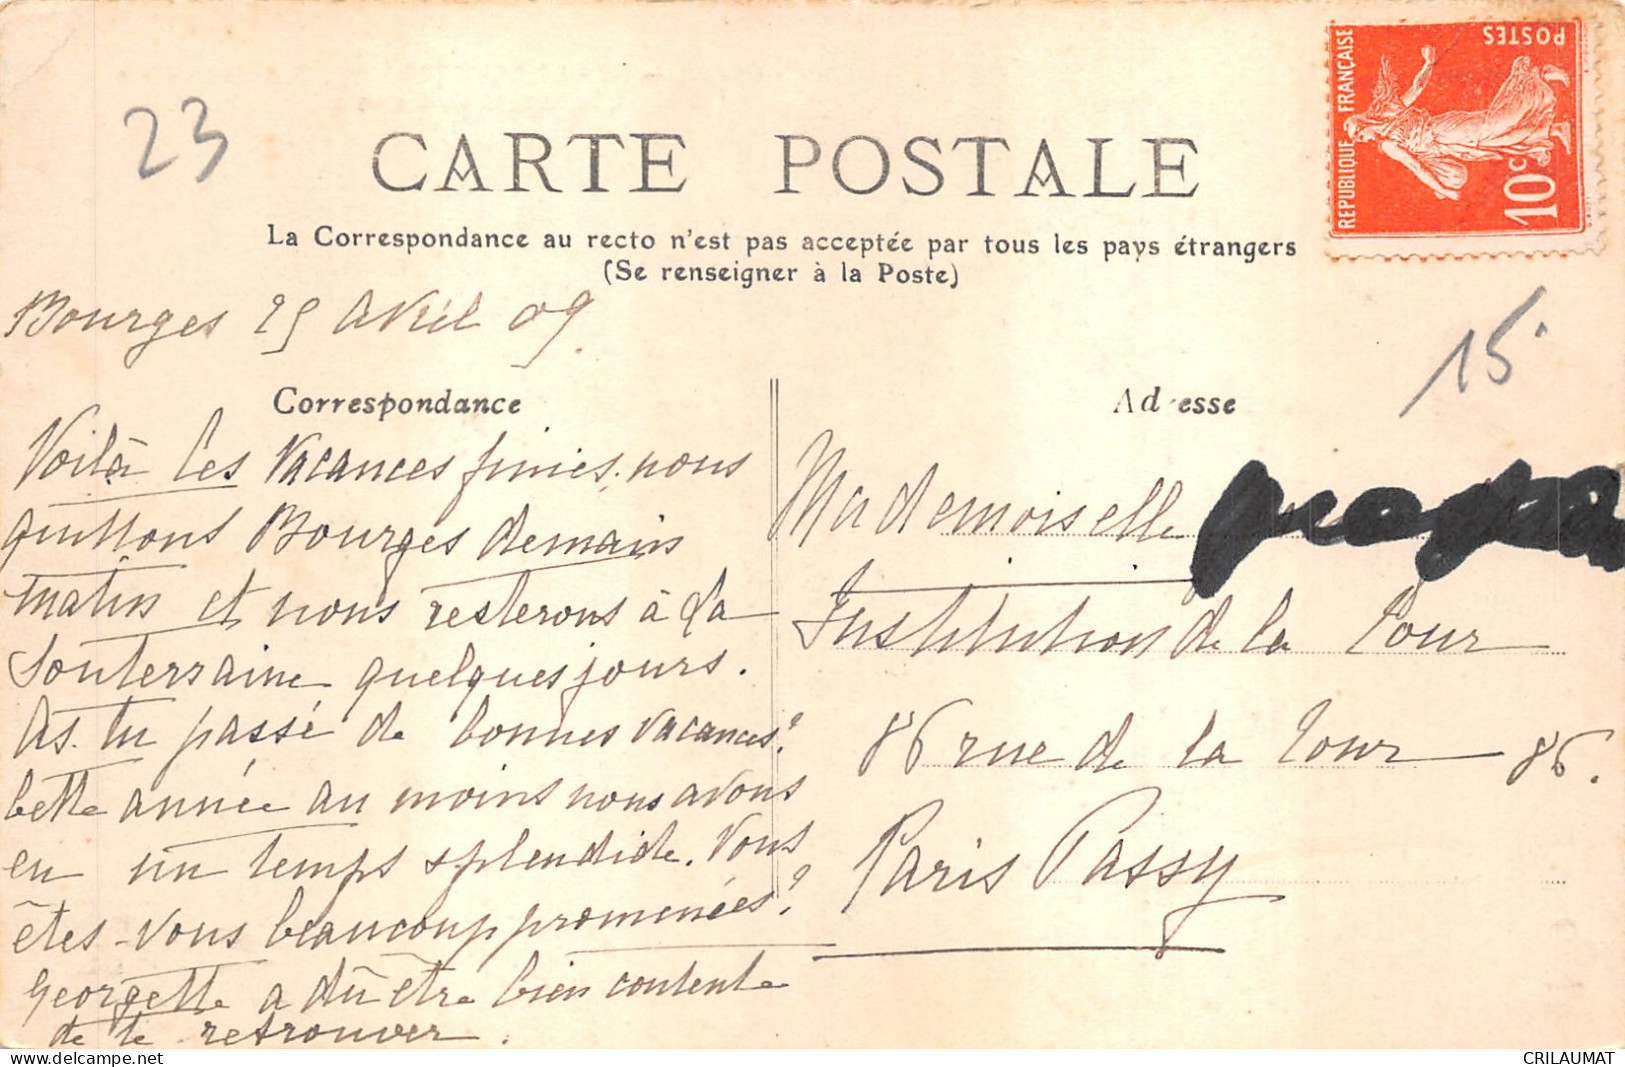 REPUBLIQUE FRANÇAISE
POSTES
10c
23
CARTE POSTALE
La Correspondance au recto n'est pas acceptée par tous les pays étrangers
(Se renseigner à la Poste)
Bourges 25 Avril 09.
15.
Correspondance
Voilà les vacances finies. nous
quittons Bourges demain
matin et nous resterons à La
Souterraine quelques jours.
As-tu passé de bonnes vacances?
Cette année au moins nous avons
eu un temps splendide. Vous
êtes-vous beaucoup promenées?
Georgette a dû être bien contente
de te retrouver.
Adresse
Mademoiselle
Institution de la Tour
86 rue de la Tour 86.
Paris Passy
CRILAUMAT